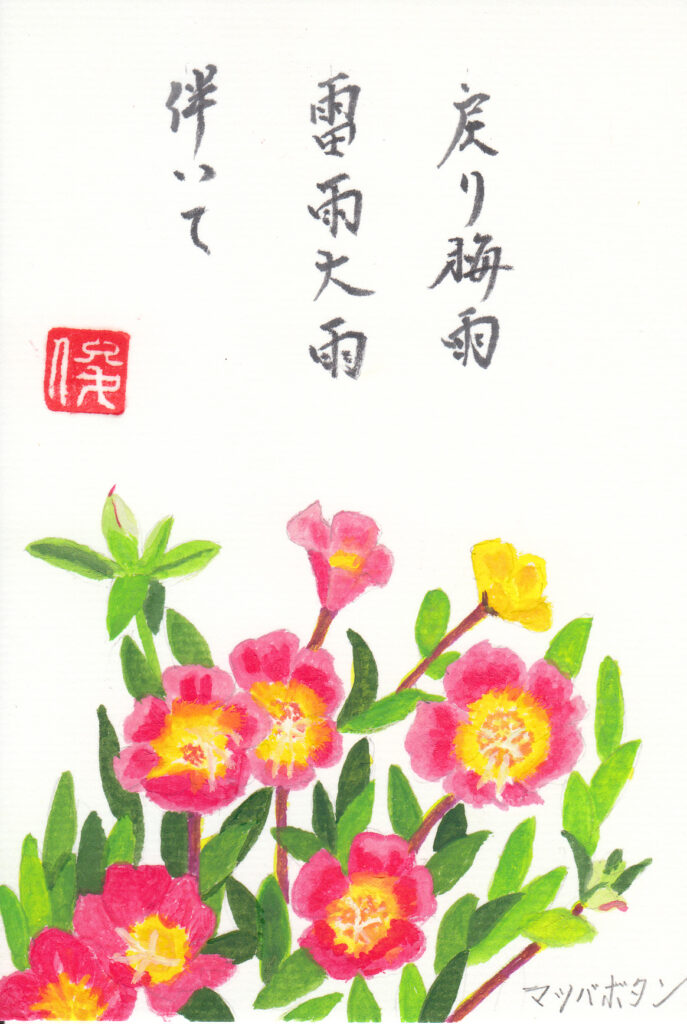 戻り梅雨
雷雨大雨
伴いて
俊
マツバボタン